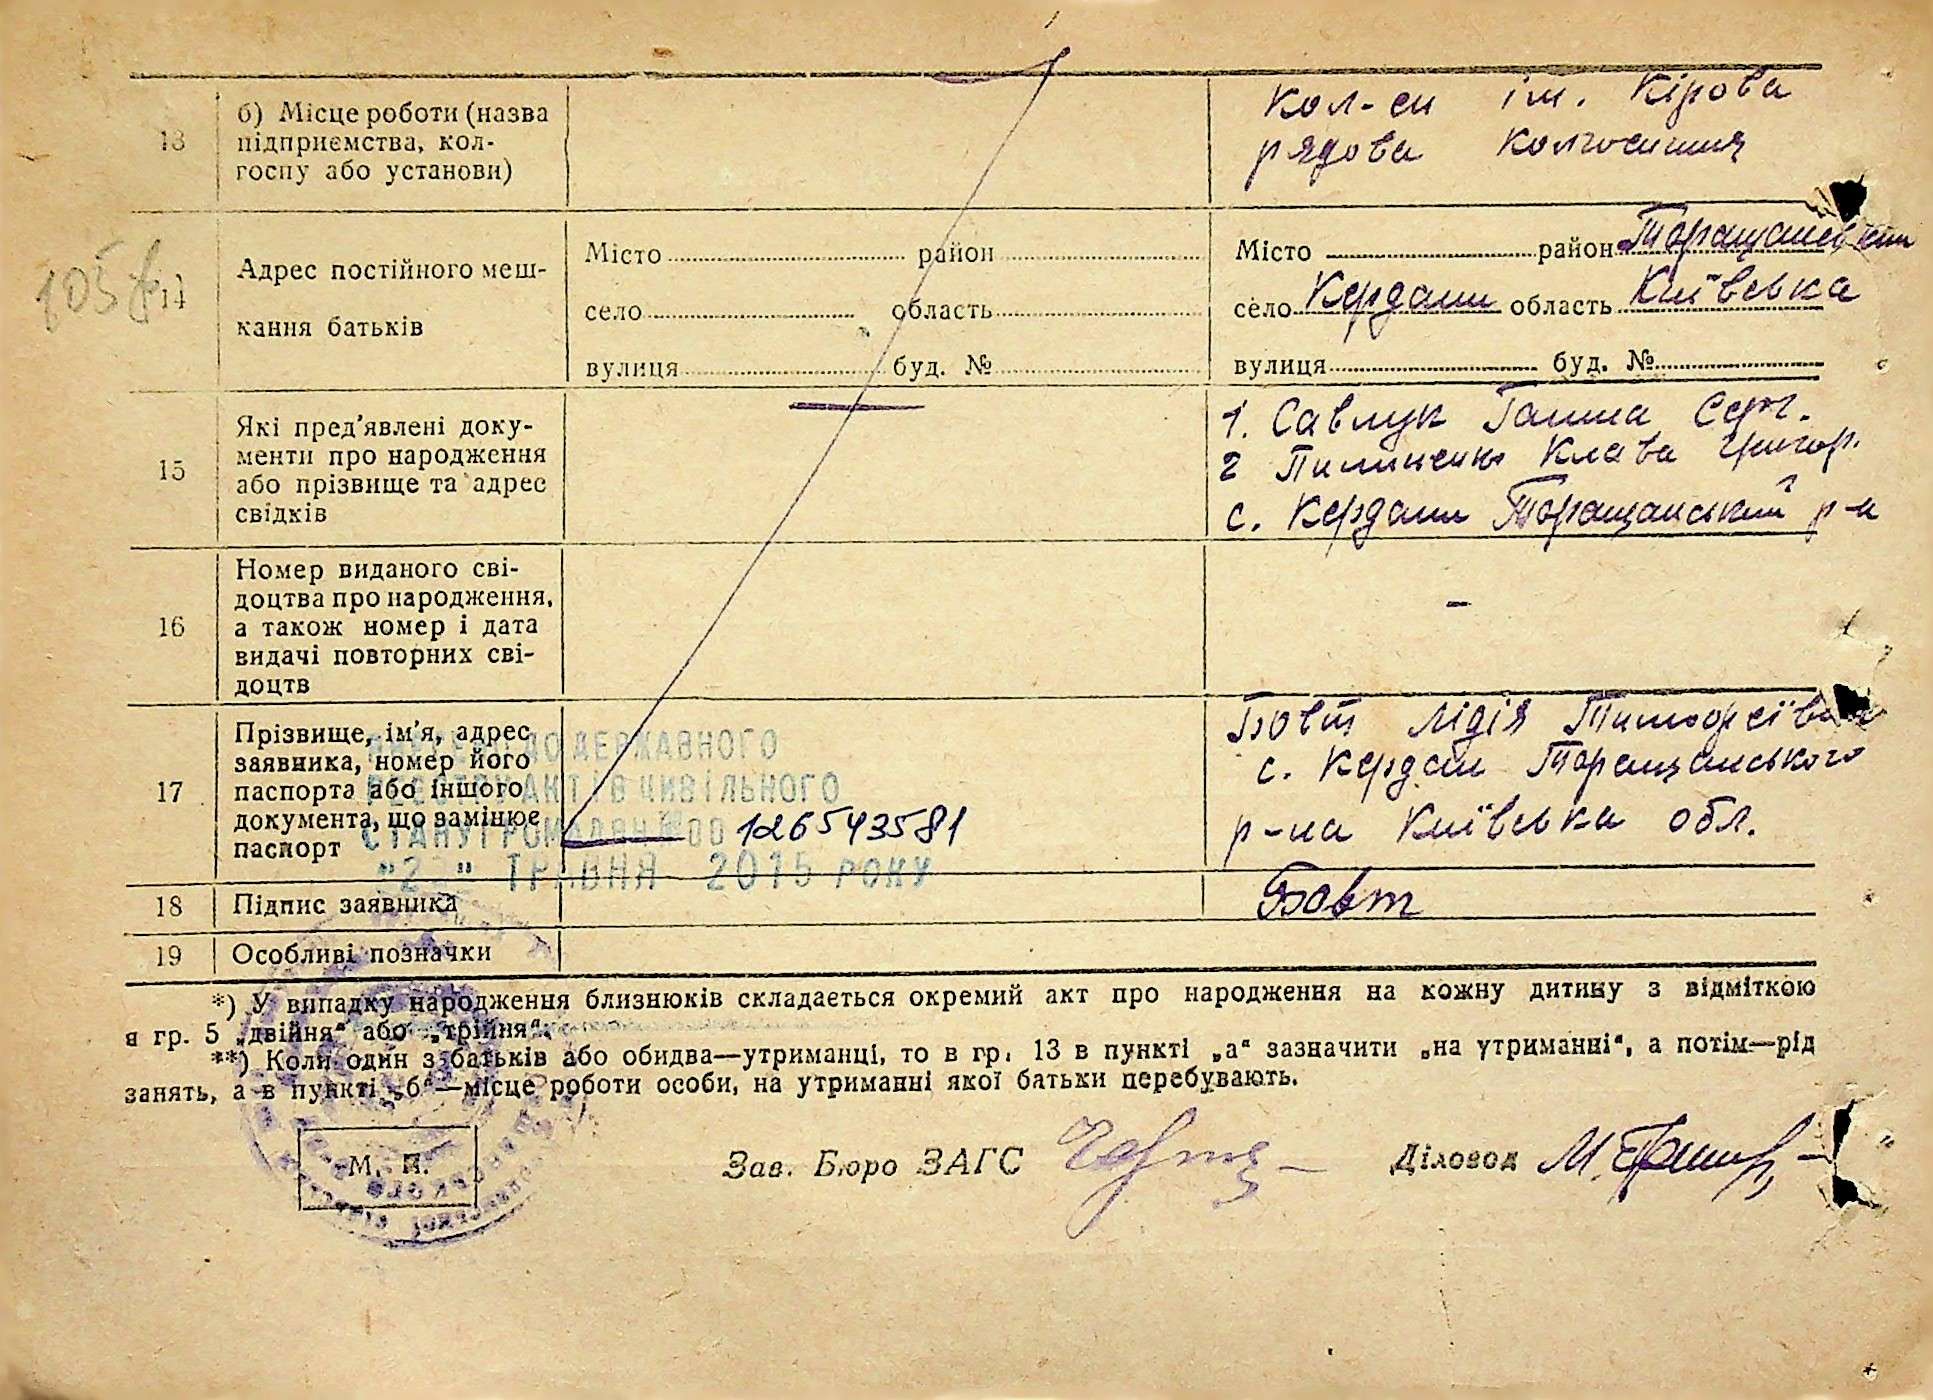 13
б) Місце роботи (назва
підприємства, кол-
госпу або установи)
Кол-сп ім. Кірова
рядова колгоспниця
105
14
Адрес постійного меш-
кання батьків
Місто район
село область
вулиця буд. №
Місто район Таращанський
село Кердани область Київська
вулиця буд. №
15
Які пред'явлені доку-
менти про народження
або прізвище та адрес
свідків
1. Савлук Ганна Серг.
2 Пилипенко Клава Григор.
с. Кердани Таращанський р-н
16
Номер виданого сві-
доцтва про народження,
а також номер і дата
видачі повторних сві-
доцтв
–
17
Прізвище, ім'я, адрес
заявника, номер його
паспорта або іншого
документа, що замінює
паспорт
ДО ДЕРЖАВНОГО
РЕЄСТРУ АКТІВ ЦИВІЛЬНОГО
СТАНУ ГРОМАДЯН 00 126543581
"2 " ТРАВНЯ 2015 РОКУ
Бовт Лідія Тимофеівна
с. Кердани Таращанського
р-на Київська обл.
18
Підпис заявника
Бовт
19
Особливі позначки
*) У випадку народження близнюків складається окремий акт про народження на кожну дитину з відміткою
в гр. 5 „двійня“ або „трійня“.
**) Коли один з батьків або обидва—утриманці, то в гр. 13 в пункті „а“ зазначити „на утриманні“, а потім—рід
занять, а в пункті „б“—місце роботи особи, на утриманні якої батьки перебувають.
М. П.
Зав. Бюро ЗАГС
Діловод